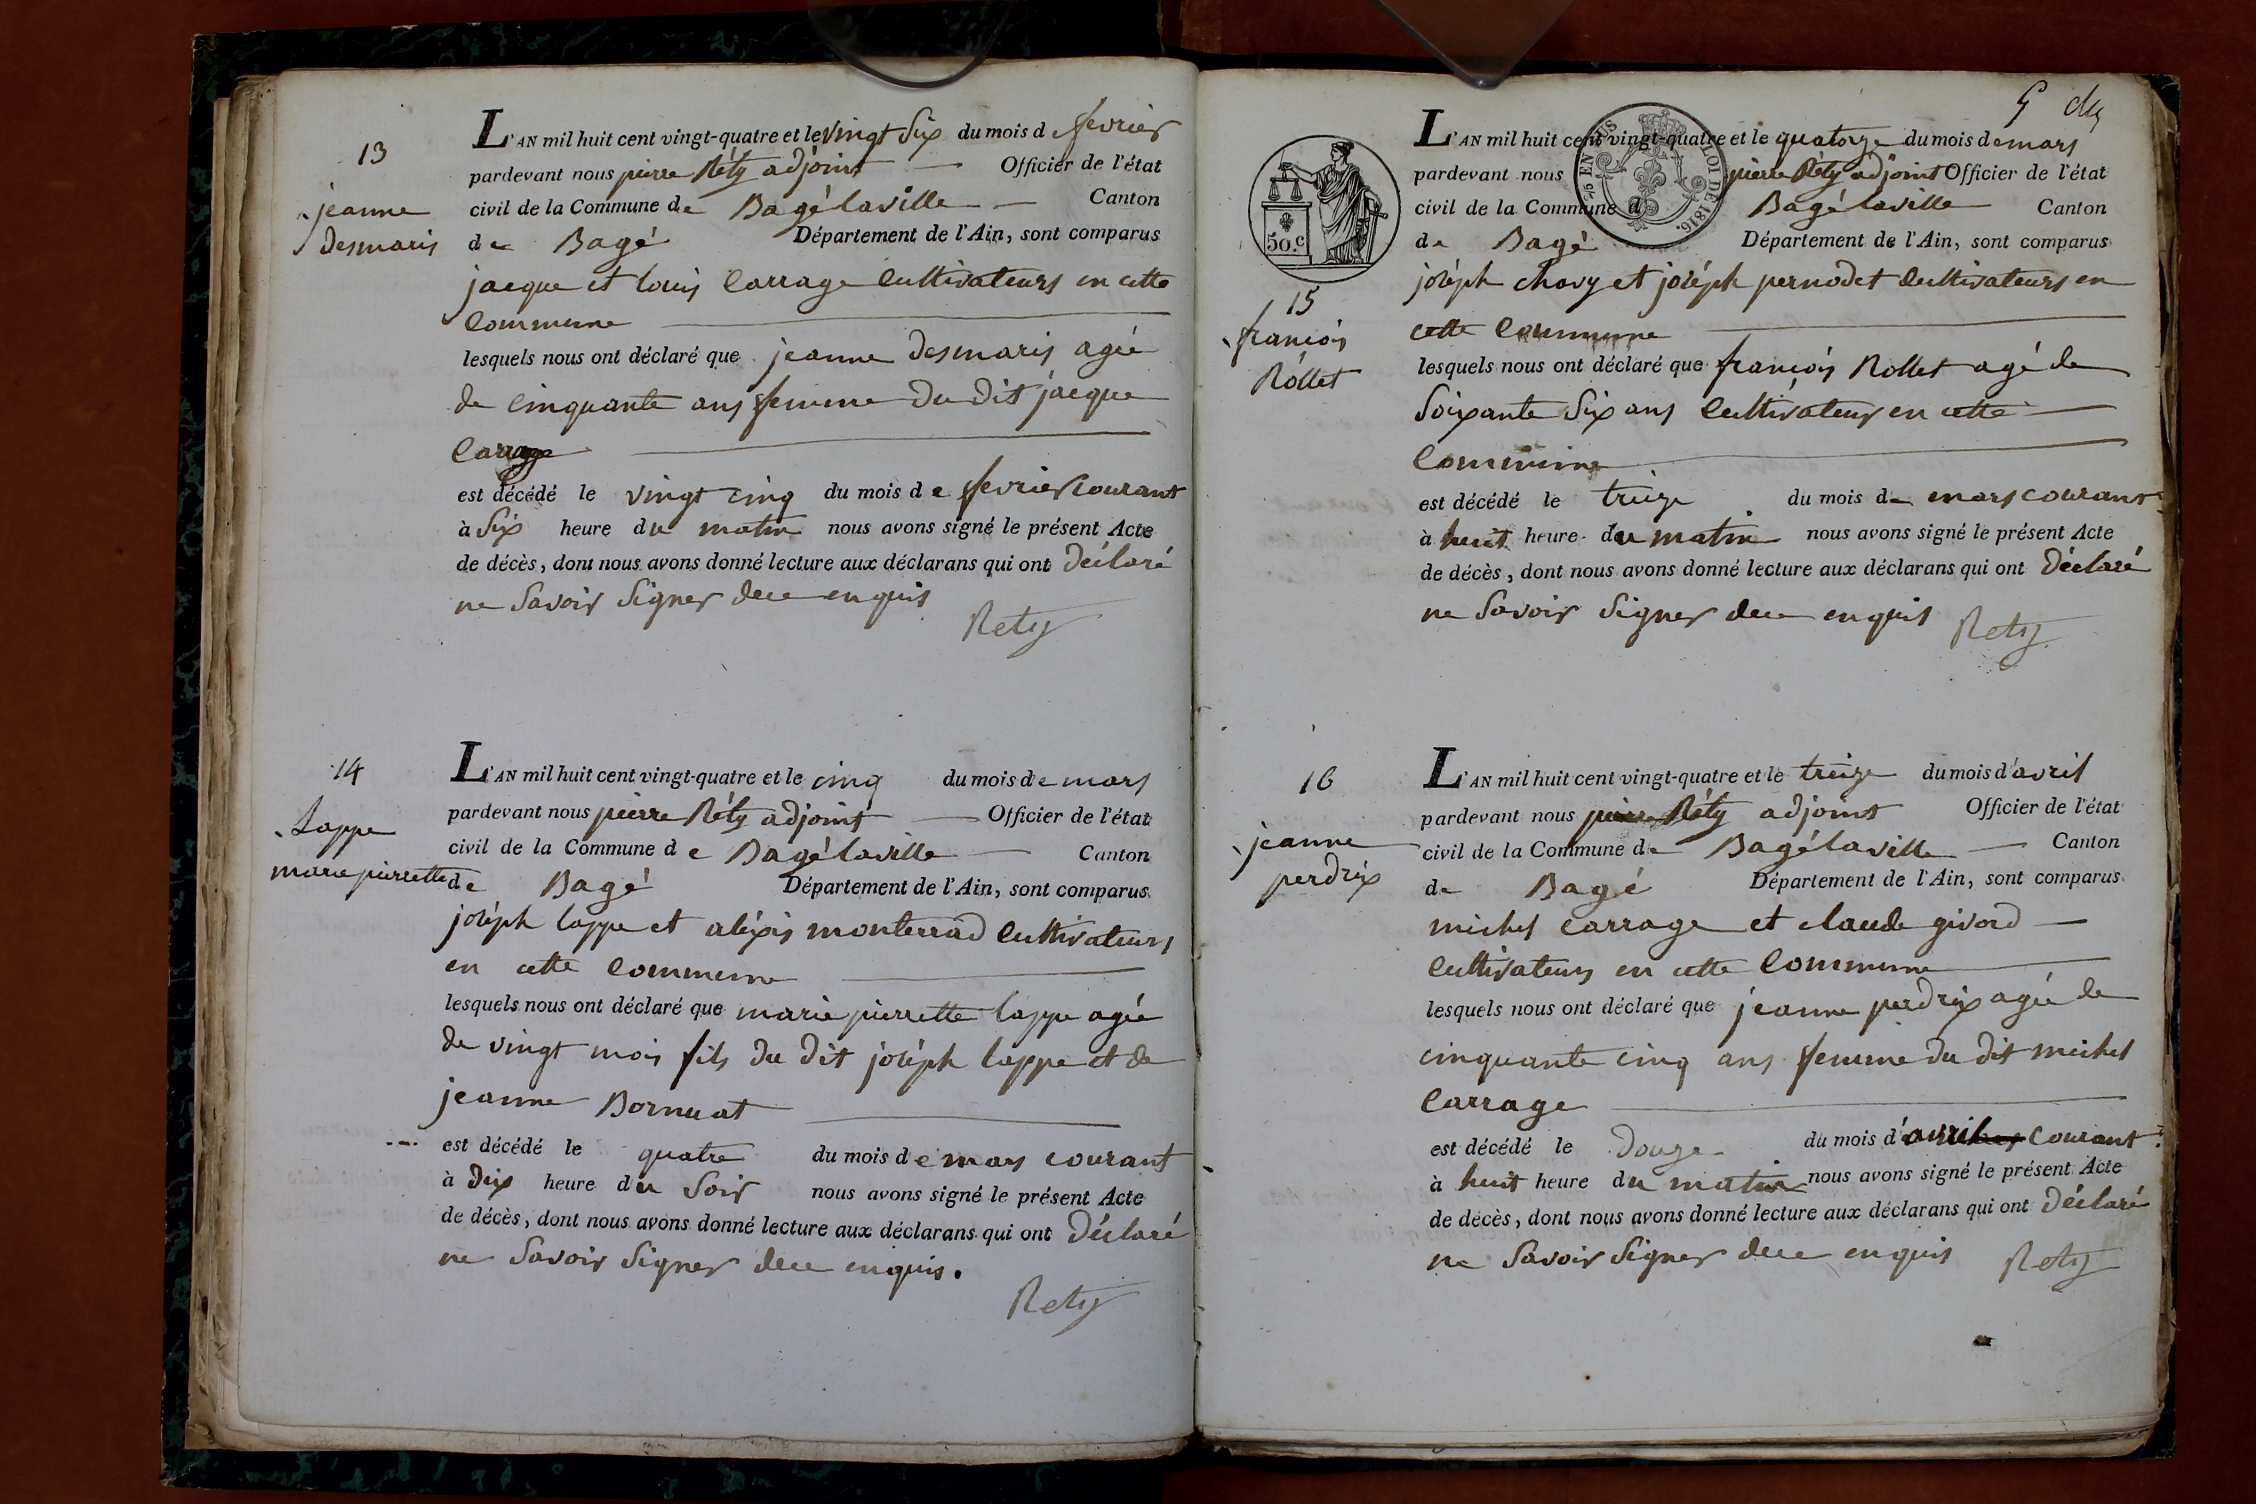 13
jeanne
desmaris
L'AN mil huit cent vingt-quatre et le vingt Six du mois de fevrier
pardevant nous pierre Réty adjoint Officier de l'état
civil de la Commune de Bagé laville Canton
de Bagé Département de l'Ain, sont comparus
jacque et louis Carrage Cultivateurs en cette
Commune
lesquels nous ont déclaré que jeanne desmaris agée
de cinquante ans femme du dit jacque
Carrage
est décédé le vingt cinq du mois de fevrier courant
à Six heure du matin nous avons signé le présent Acte
de décès, dont nous avons donné lecture aux déclarans qui ont déclaré
ne Savoir Signer de ce enquis
Rety
14
Lappe
marie pierrette
L'AN mil huit cent vingt-quatre et le cinq du mois de mars
pardevant nous pierre Réty adjoint Officier de l'état
civil de la Commune de Bagé laville Canton
de Bagé Département de l'Ain, sont comparus
joséph lappe et aléxis monterrad Cultivateurs
en cette Commune
lesquels nous ont déclaré que marie pierrette lappe agée
de vingt mois fils du dit joséph lappe et de
jeanne Bornuat
est décédé le quatre du mois de mars courant
à dix heure du Soir nous avons signé le présent Acte
de décès, dont nous avons donné lecture aux déclarans qui ont déclaré
ne Savoir Signer de ce enquis.
Rety
5
50.c
EN SUS
LOI DE 1816.
15
francois
Róllet
L'AN mil huit cent vingt-quatre et le quatorze du mois de mars
pardevant nous pierre Réty adjoint Officier de l'état
civil de la Commune de Bagé laville Canton
de Bagé Département de l'Ain, sont comparus
joséph chavy et joséph pernodet Cultivateurs en
cette Commune
lesquels nous ont déclaré que francois Rollet agé de
Soixante Six ans Cultivateur en cette
Commune
est décédé le treize du mois de mars courant
à huit heure du matin nous avons signé le présent Acte
de décès, dont nous avons donné lecture aux déclarans qui ont déclaré
ne Savoir Signer de ce enquis
Rety
16
jeanne
perdrix
L'AN mil huit cent vingt-quatre et le treize du mois d'avril
pardevant nous pierre Réty adjoint Officier de l'état
civil de la Commune de Bagé laville Canton
de Bagé Département de l'Ain, sont comparus
michel Carrage et claude givord
Cultivateurs en cette Commune
lesquels nous ont déclaré que jeanne perdrix agée de
cinquante cinq ans femme du dit michel
Carrage
est décédé le douze du mois d'avril courant
à huit heure du matin nous avons signé le présent Acte
de décès, dont nous avons donné lecture aux déclarans qui ont déclaré
ne Savoir Signer de ce enquis
Rety